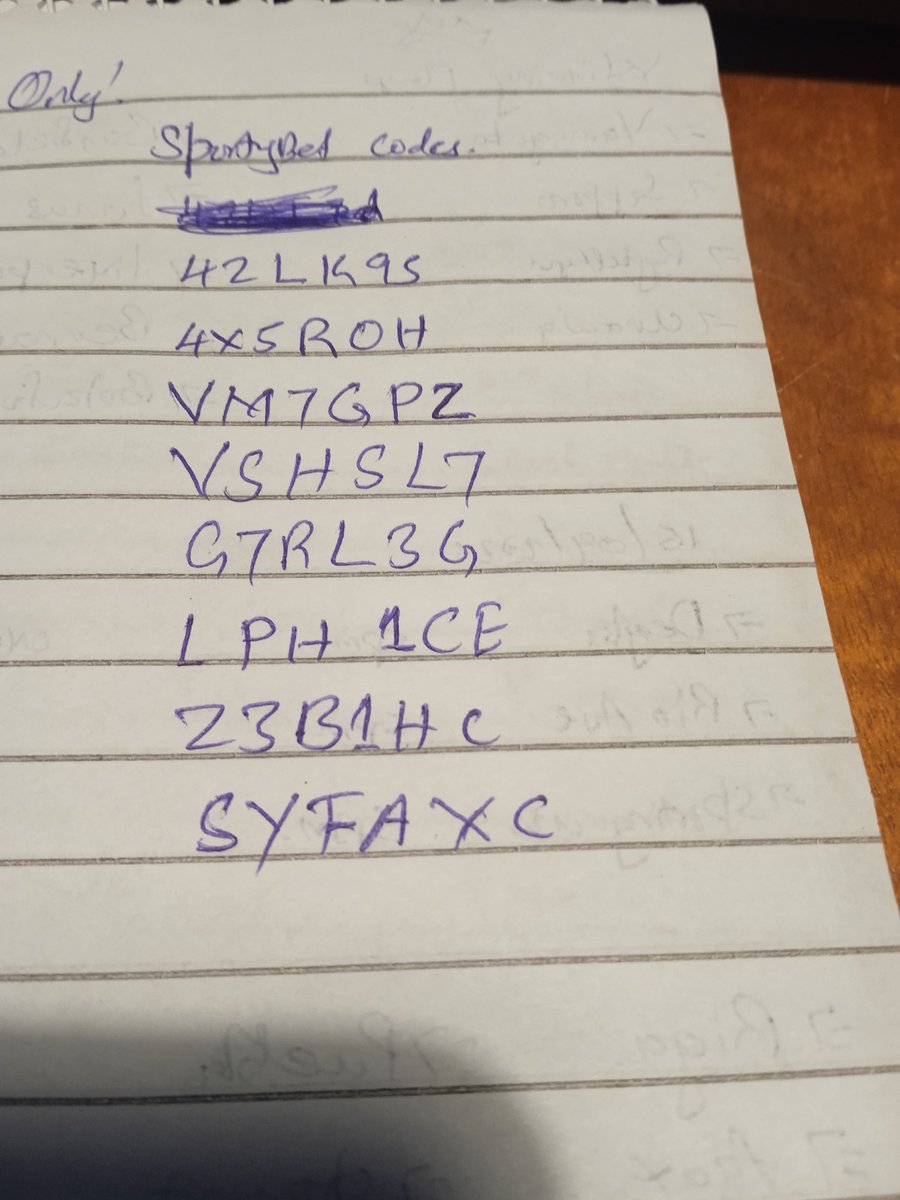 Only!
SportyBet codes.
42LK9S
4X5ROH
VM7GPZ
VSHSL7
G7RL3G
LPH1CE
Z3B1HC
SYFAXC